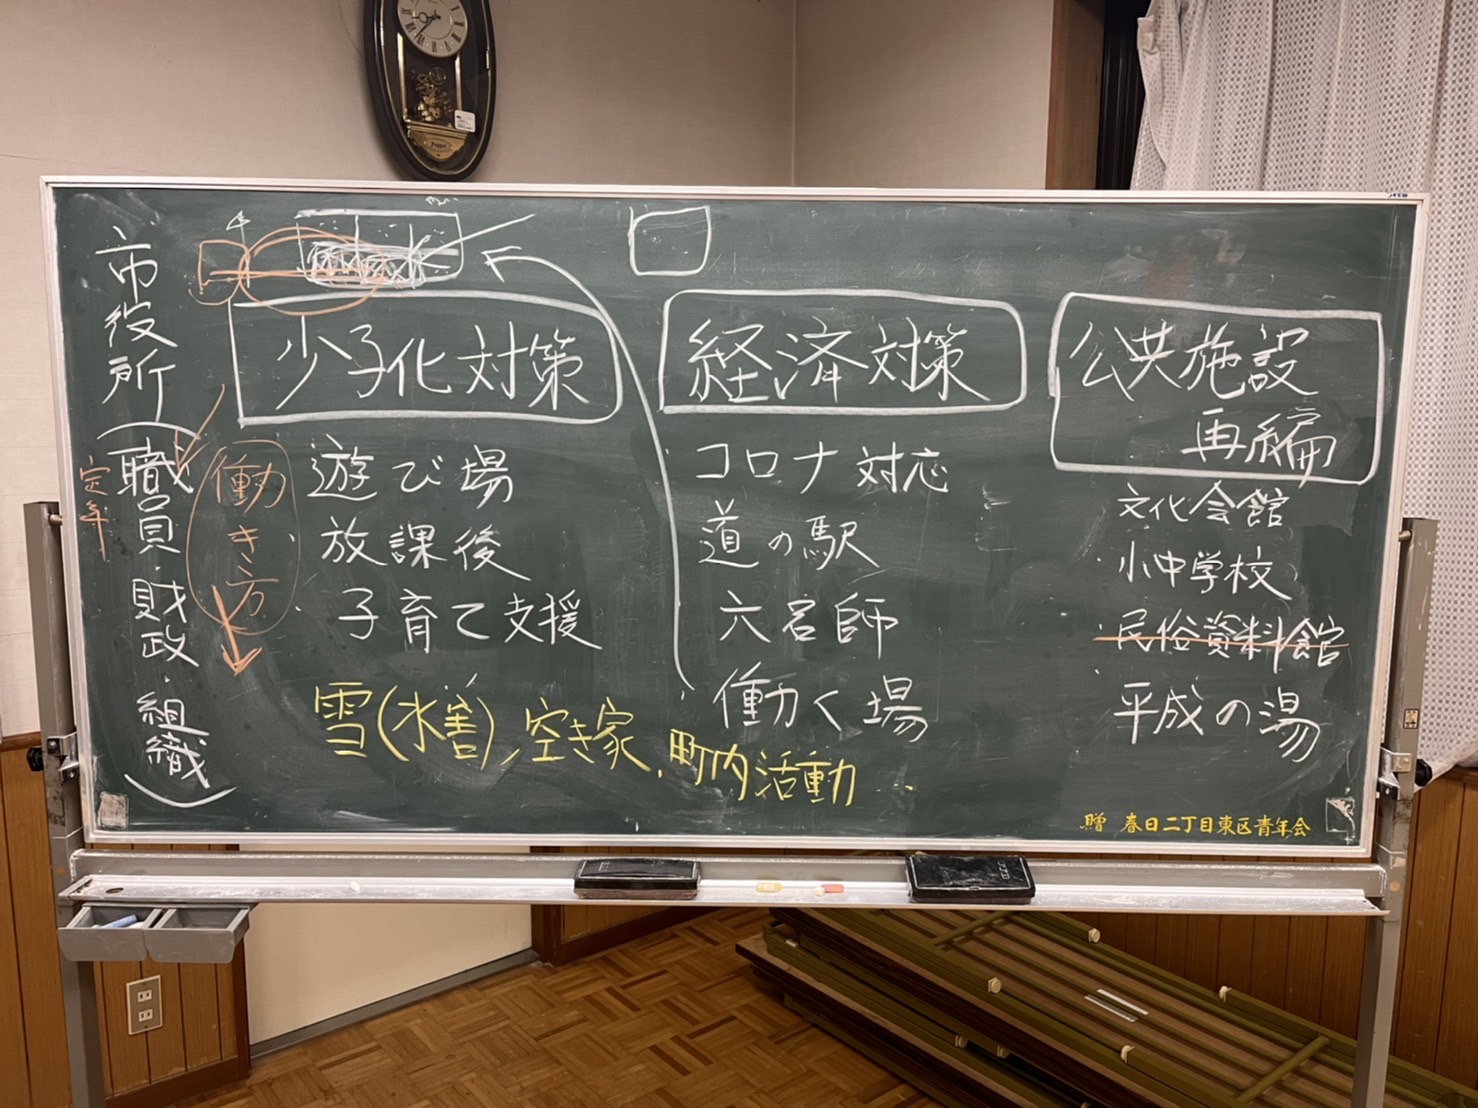 市役所(職員・財政・組織)
定年
働き方
少子化対策
遊び場
放課後
子育て支援
経済対策
コロナ対応
道の駅
六名師
働く場
公共施設
再編
・文化会館
・小中学校
・民俗資料館
・平成の湯
雪(水害)、空き家、町内活動
贈 春日二丁目東区青年会